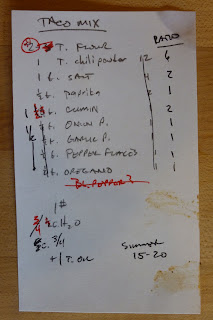 TACO MIX
RATIO
T. FLOUR
1 T. Chili powder 12 6
1 t. SALT 4 2
½ t. Paprika 1
t. CUMIN 2
¼ t. ONION P. 1
¼ t. GARLIC P. 1
¼ t. PEPPER FLAKES 1
¼ t. OREGANO 1
BL. PEPPER?
1#
c. H₂O
+1 T. OIL
Simmer
15-20